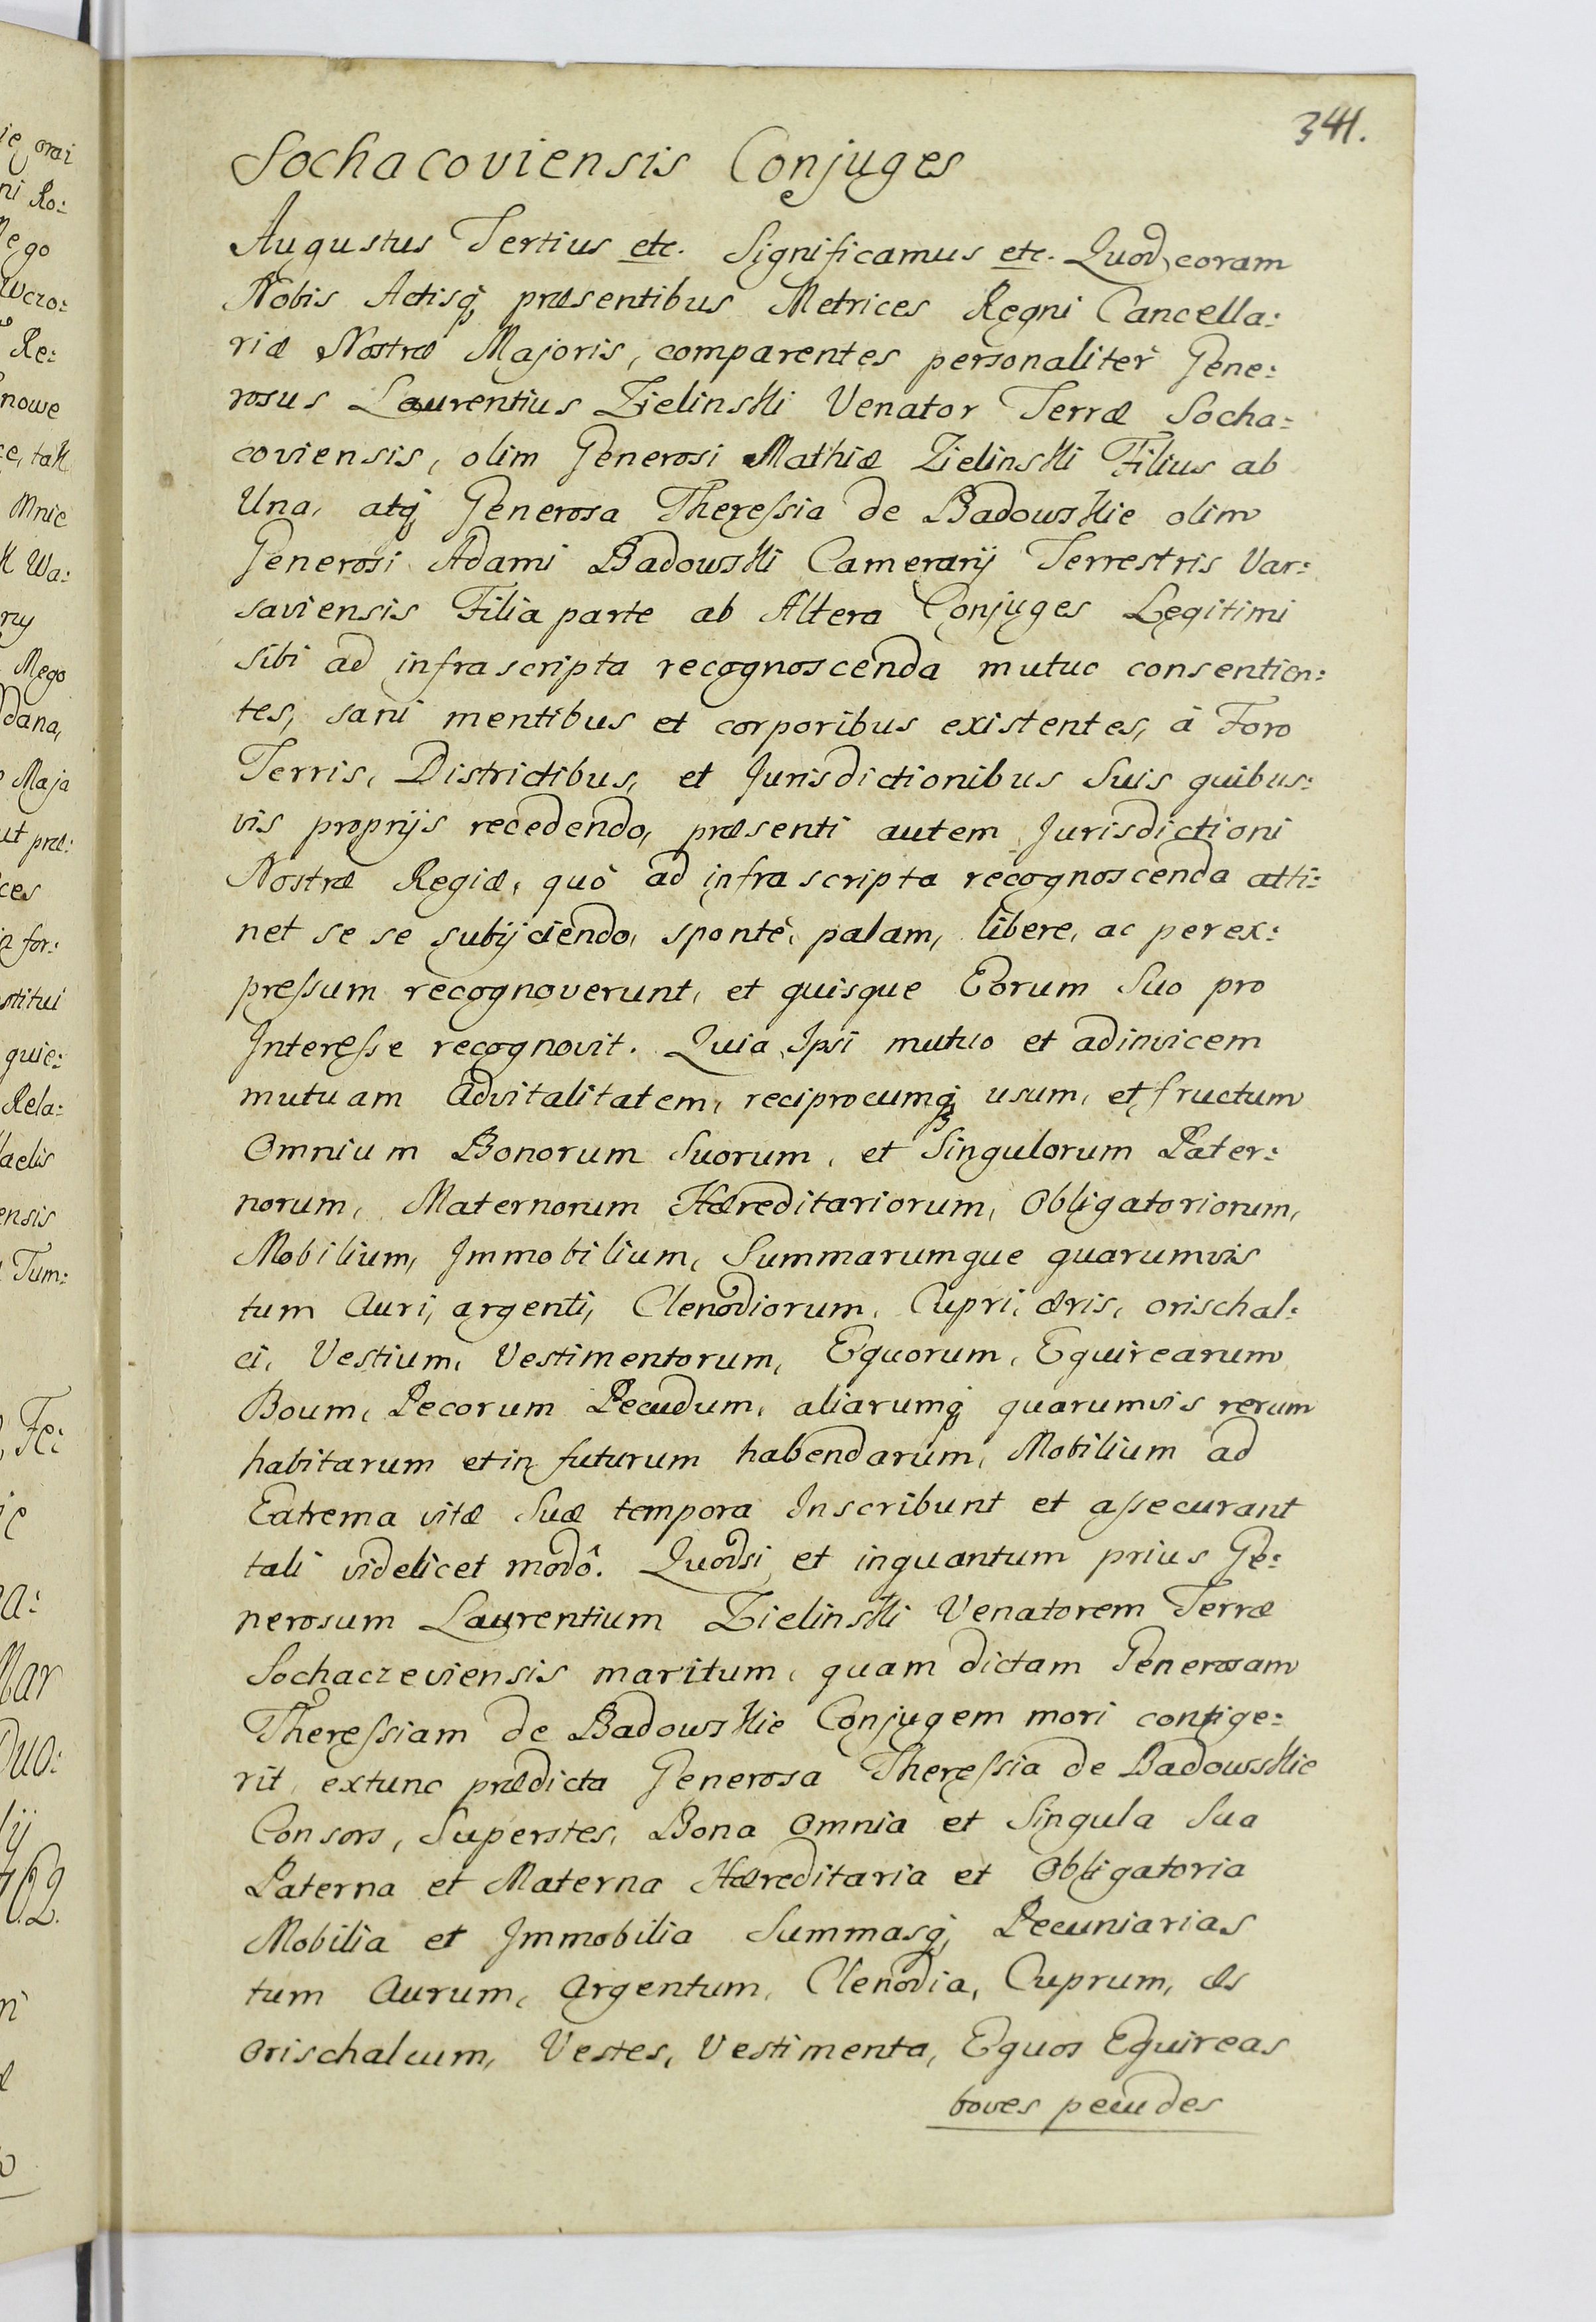 341.
Sochacoviensis Conjuges
Augustus Tertius etc. Significamus etc. Quod coram
Nobis Actisq, præsentibus Metrices Regni Cancella:
riæ Nostræ Majoris, comparentes personaliter Gene:
rosus Laurentius Zielinski Venator Terræ Socha:
coviensis, olim Generosi Mathiæ Zielinski Filius ab
Una, atq Generosa Theressia de Badowskie olim
Generosi Adami Badowski Camerarij Terrestris Var:
saviensis Filia parte ab Altera Conjuges Legitimi
sibi ad infrascripta recognoscenda mutuo consentien:
tes, sani mentibus et corporibus existentes, à Foro
Terris, Districtibus, et Jurisdictionibus Suis quibus:
vis proprijs recedendo, præsenti autem Jurisdictioni
Nostræ Regiæ, quò ad infrascripta recognoscenda atti:
net se se subijciendo, sponte, palam, libere, ac per ex:
pressum recognoverunt, et quisque Eorum Suo pro
Interesse recognovit. Quia Ipsi mutuo et adinvicem
mutuam advitalitatem, reciprocumq, usum, et fructum
Omnium Bonorum Suorum, et Singulorum Pater:
norum, Maternorum Hæreditariorum, Obligatoriorum,
Mobilium, Immobilium, Summarumque quarumvis
tum Auri, argenti, Clenodiorum, Cupri, æris, orischal:
ci, Vestium, Vestimentorum, Equorum, Equirearum
Boum, Pecorum Pecudum, aliarumq quarumvis rerum
habitarum et in futurum habendarum, Mobilium ad
Extrema vitæ Suæ tempora Inscribunt et assecurant
tali videlicet modô. Quodsi et inquantum prius Ge:
nerosum Laurentium Zielinski Venatorem Terræ
Sochaczeviensis maritum, quam dictam Generosam
Theressiam de Badowskie Conjugem mori contige:
rit, extunc prædicta Generosa Theressia de Badowskie
Consors, Superstes, Bona Omnia et Singula Sua
Paterna et Materna Hæreditaria et Obligatoria
Mobilia et Immobilia Summasq, Pecuniarias
tum Aurum, Argentum, Clenodia, Cuprum, æs
Orischalcum, Vestes, Vestimenta, Equos Equireas
boves pecudes